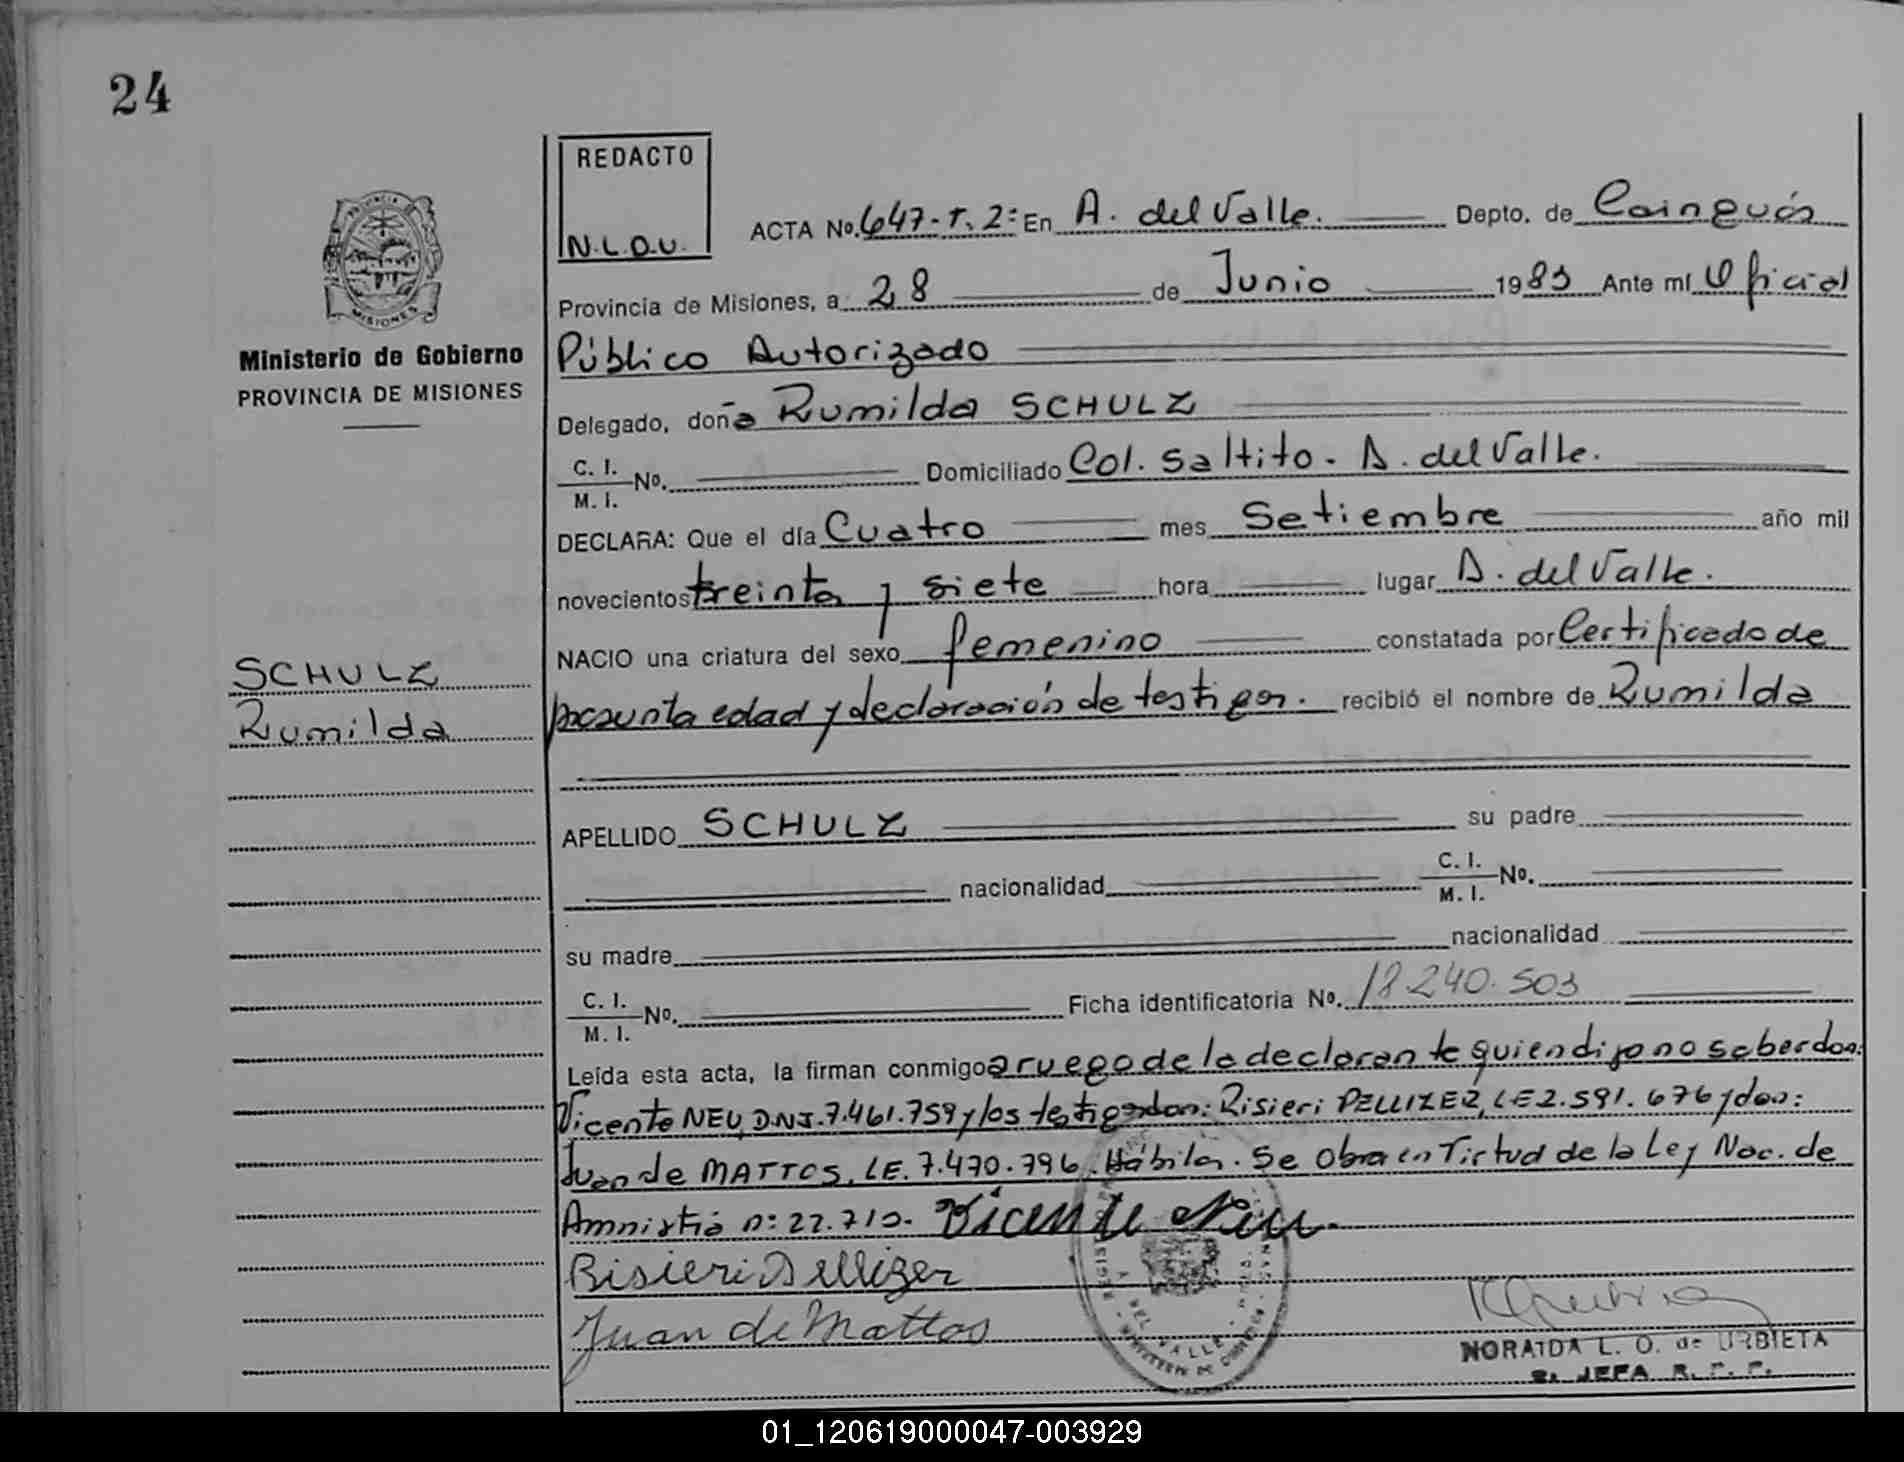 24
REDACTO
N.L.O.U.
ACTA No. 647-T. 2º En A. del Valle. Depto. de Cainguás
Provincia de Misiones, a 28 de Junio 1983 Ante mí Oficial
Público Autorizado
Ministerio de Gobierno
PROVINCIA DE MISIONES
Delegado, doña Rumilda SCHULZ
C. I.
M. I. No. Domiciliado Col. Saltito - A. del Valle.
DECLARA: Que el día Cuatro mes Setiembre año mil
novecientos treinta y siete hora lugar A. del Valle.
NACIO una criatura del sexo femenino constatada por Certificado de
presunta edad y declaración de testigos. recibió el nombre de Rumilda
SCHULZ
Rumilda
APELLIDO SCHULZ su padre
nacionalidad C. I.
M. I. No.
su madre nacionalidad
C. I.
M. I. No. Ficha identificatoria No. 18.240.503
Leída esta acta, la firman conmigo a ruego de la declarante quien dijo no saber don:
Vicente NEU, D.N.I. 7.461.759 y los testigos don: Risieri PELLIZER, LE 2.591.676 y don:
Juan de MATTOS, LE. 7.470.796. Hábiles. Se Obra en Virtud de la Ley Nac. de
Amnistía nº 22.710. Vicente Neu
Risieri Pellizer
Juan de Mattos
NORAIDA L. O. de URBIETA
JEFA R. P. P.
DEL VALLE
MISIONES
01_120619000047-003929